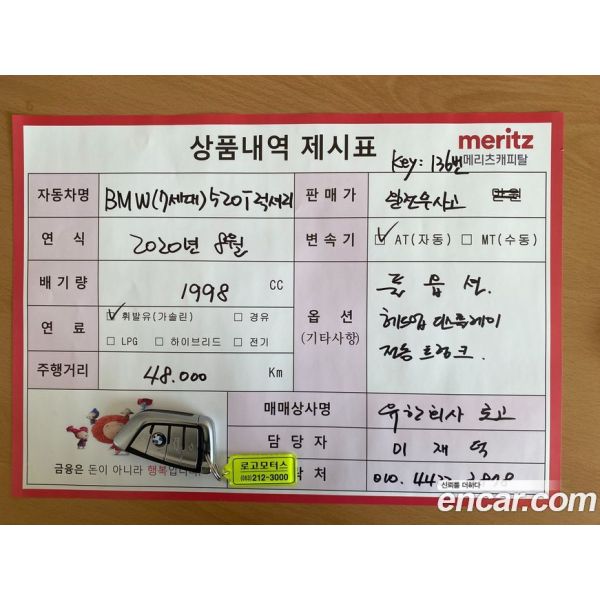 상품내역 제시표
meritz
메리츠캐피탈
Key: 136번
자동차명 BMW(7세대) 520i 럭셔리
판매가 완전무사고 만원
연 식 2020년 8월
변속기 ☑ AT(자동) ☐ MT(수동)
배기량 1998 CC
연 료 ☑ 휘발유(가솔린) ☐ 경유
☐ LPG ☐ 하이브리드 ☐ 전기
주행거리 48.000 Km
옵 션
(기타사항)
풀 옵션.
헤드업 디스플레이
전동 트렁크.
매매상사명 유한회사 로고
담 당 자 이재덕
락처 010.44
금융은 돈이 아니라 행복입니
로고모터스
212-3000
신뢰를 더하다
encar.com